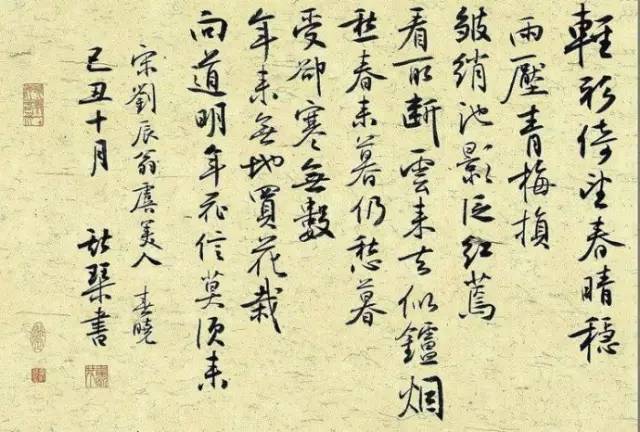 輕衫倚望春晴穩
雨壓青梅損
皺綃池影泛紅蔫
看取斷雲來去似鑪烟
愁春未暮仍愁暮
受卻寒無數
年來無地買花栽
向道明年花信莫須來
宋劉辰翁虞美人 春曉
己丑十月 琴書